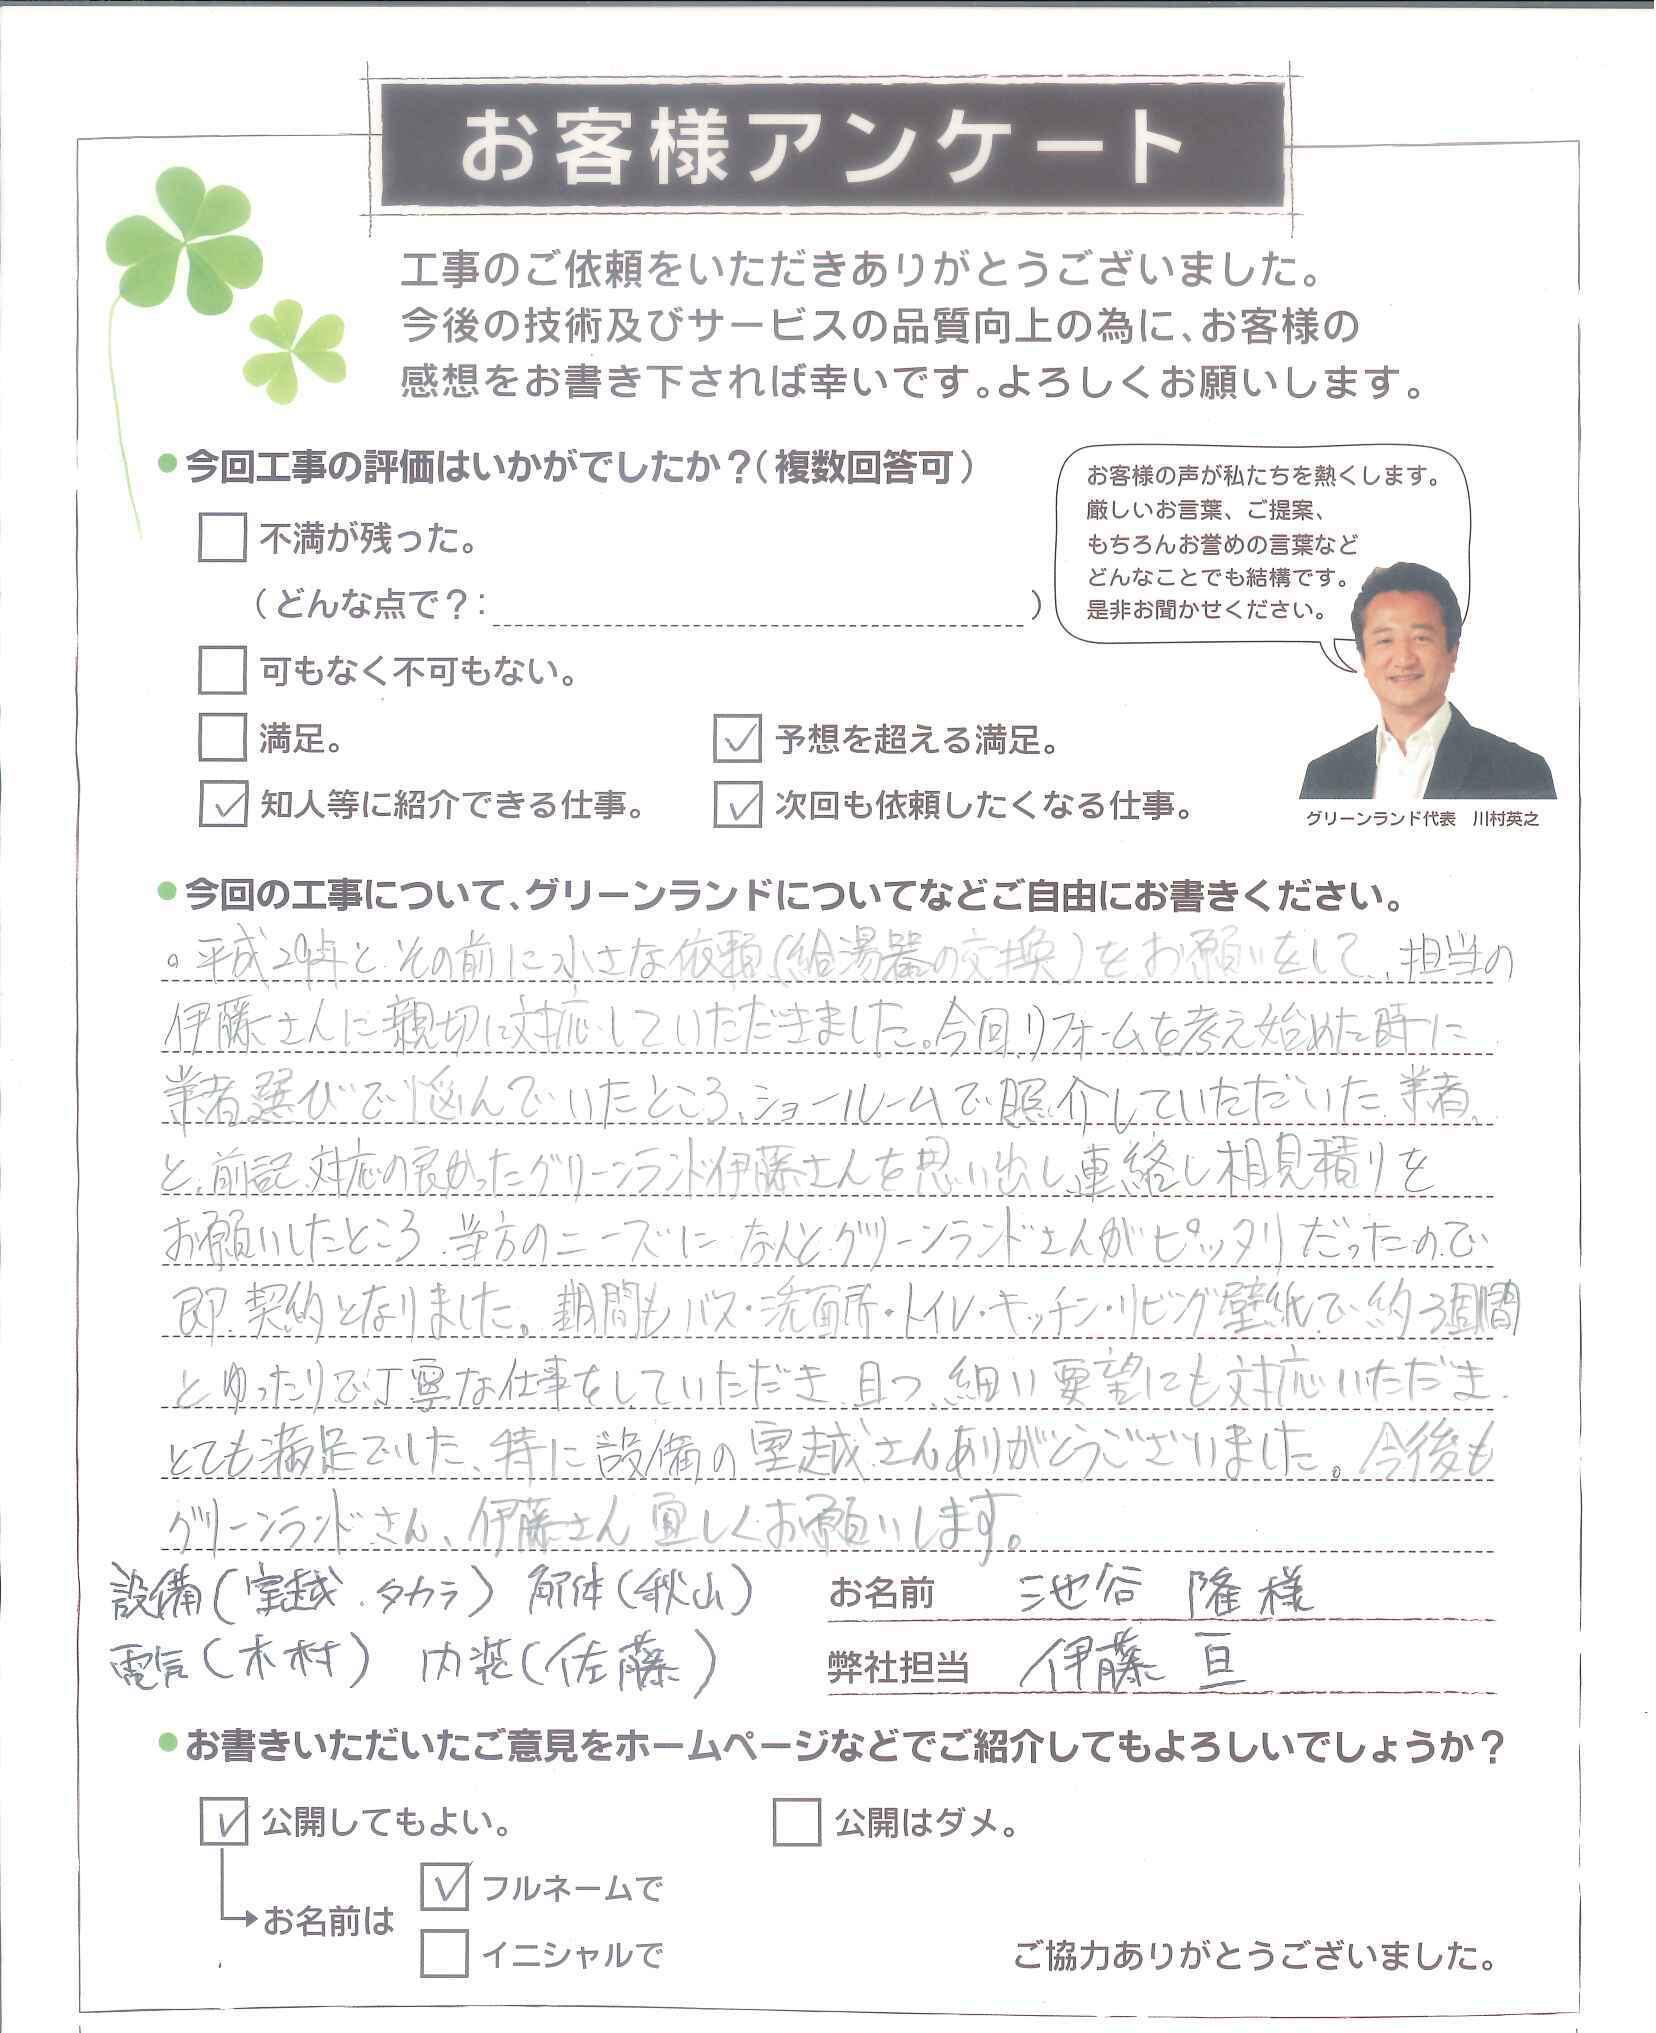 お客様アンケート
工事のご依頼をいただきありがとうございました。
今後の技術及びサービスの品質向上の為に、お客様の
感想をお書き下されば幸いです。よろしくお願いします。
今回工事の評価はいかがでしたか？（複数回答可）
不満が残った。
（どんな点で？：　）
可もなく不可もない。
満足。
予想を超える満足。
知人等に紹介できる仕事。
次回も依頼したくなる仕事。
お客様の声が私たちを熱くします。
厳しいお言葉、ご提案、
もちろんお誉めの言葉など
どんなことでも結構です。
是非お聞かせください。
グリーンランド代表　川村英之
今回の工事について、グリーンランドについてなどご自由にお書きください。
。平成29年と、その前に小さな依頼(給湯器の交換)をお願いをして、担当の
伊藤さんに親切に対応していただきました。今回、リフォームを考え始めた時に
業者選びで悩んでいたところ、ショールームで照介していただいた業者、
と、前記、対応の良かったグリーンランド伊藤さんを思い出し、連絡し相見積りを
お願いしたところ、当方のニーズに、なんとグリーンランドさんがピッタリだったので
即、契約となりました。期間も、バス・洗面所・トイレ・キッチン・リビング壁紙で約3週間
とゆったりで、丁寧な仕事をしていただき、且つ、細い要望にも対応いただき
とても満足でした、特に設備の室越さんありがとうございました。今後も
グリーンランドさん、伊藤さん宜しくお願いします。
設備(室越、タカラ)　解体(秋山)
電気(木村)　内装(佐藤)
お名前　池谷　隆様
弊社担当　伊藤　亘
お書きいただいたご意見をホームページなどでご紹介してもよろしいでしょうか？
公開してもよい。
公開はダメ。
お名前は
フルネームで
イニシャルで
ご協力ありがとうございました。